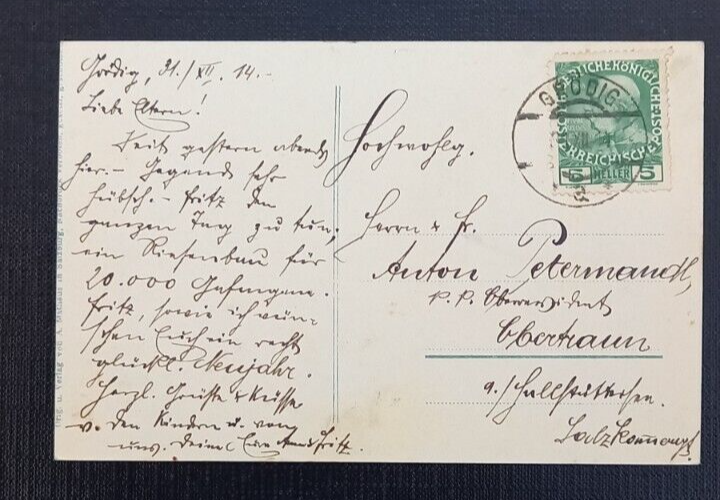 Grödig, 31./XII. 14.-
Liebe Eltern!
Seit gestern abends
hier. - Gegend sehr
hübsch. - Fritz den
ganzen Tag zu tun,
ein Riesenbau für
20.000 Gefangene.
Fritz, sowie ich wün-
schen Euch ein recht
glückl. Neujahr.
Herzl. Grüße & Küsse
v. den Kindern u. von
uns. Fritz.
Hochwohlg.
Herrn & Fr.
Anton Petermandl,
k. k. Oberrevident
Obertraun
a./Hallstättersee.
Salzkammergut.
GRÖDIG
KAISERLICHE KÖNIGLICHE
ÖSTERREICHISCHE POST
5 HELLER 5